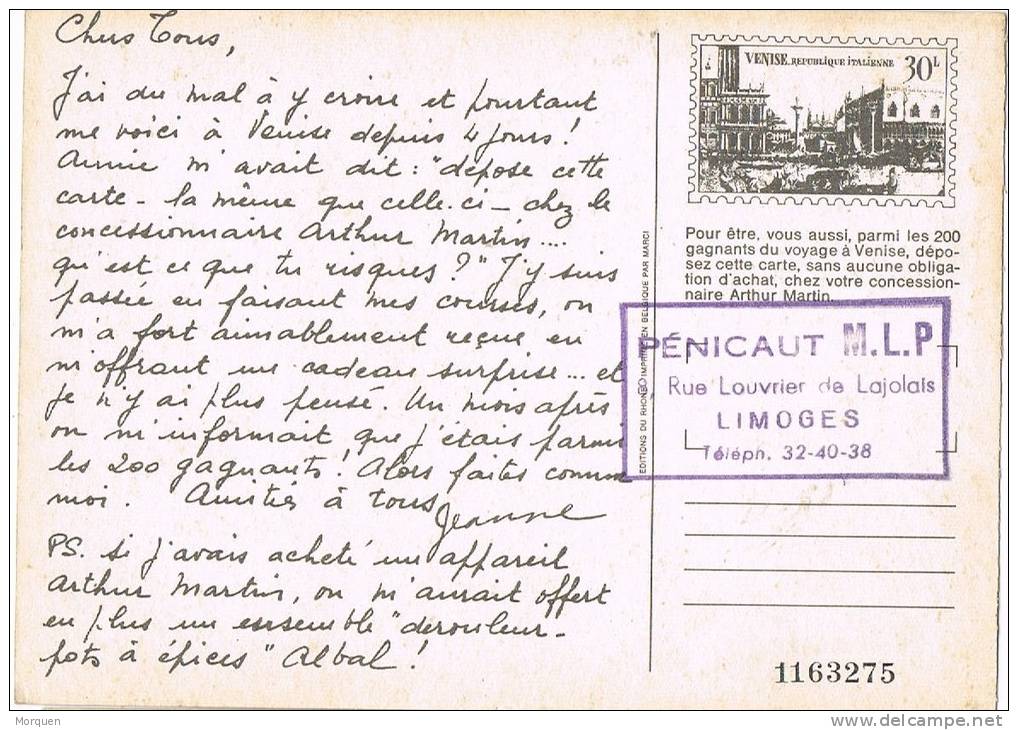 Chers Tous,
J'ai du mal à y croire et pourtant
me voici à Venise depuis 4 jours !
Annie m'avait dit : "dépose cette
carte - la même que celle-ci - chez le
concessionnaire Arthur Martin....
qu'est ce que tu risques ?" J'y suis
passée en faisant mes courses, on
m'a fort aimablement reçue en
m'offrant un cadeau surprise... et
je n'y ai plus pensé. Un mois après
on m'informait que j'étais parmi
les 200 gagnants ! Alors faites comme
moi. Amitiés à tous
Jeanne
PS. si j'avais acheté un appareil
Arthur Martin, on m'aurait offert
en plus un ensemble "derouleur-
pots à épices" Albal !
EDITIONS DU RHONE IMPRIMÉ EN BELGIQUE PAR MARCI
VENISE_REPUBLIQUE ITALIENNE 30L
Pour être, vous aussi, parmi les 200
gagnants du voyage à Venise, dépo-
sez cette carte, sans aucune obliga-
tion d'achat, chez votre concession-
naire Arthur Martin.
PÉNICAUT M.L.P
Rue Louvrier de Lajolais
LIMOGES
Téléph. 32-40-38
1163275
Morquen
delcampe.net